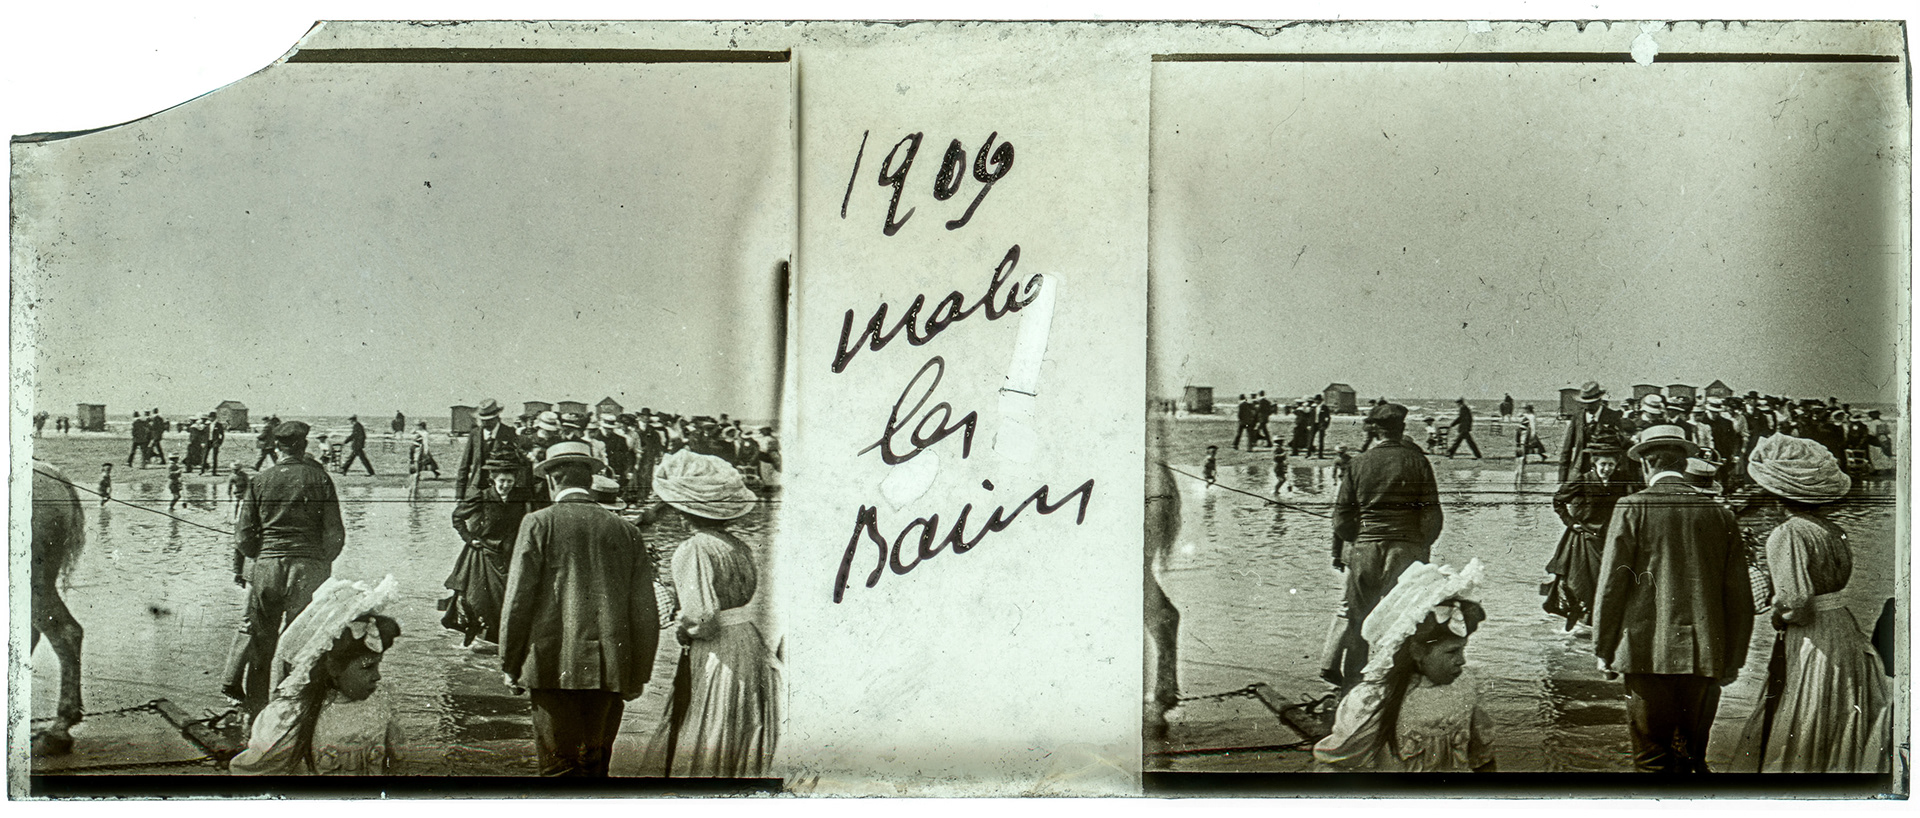 1906
malo
les
Bains